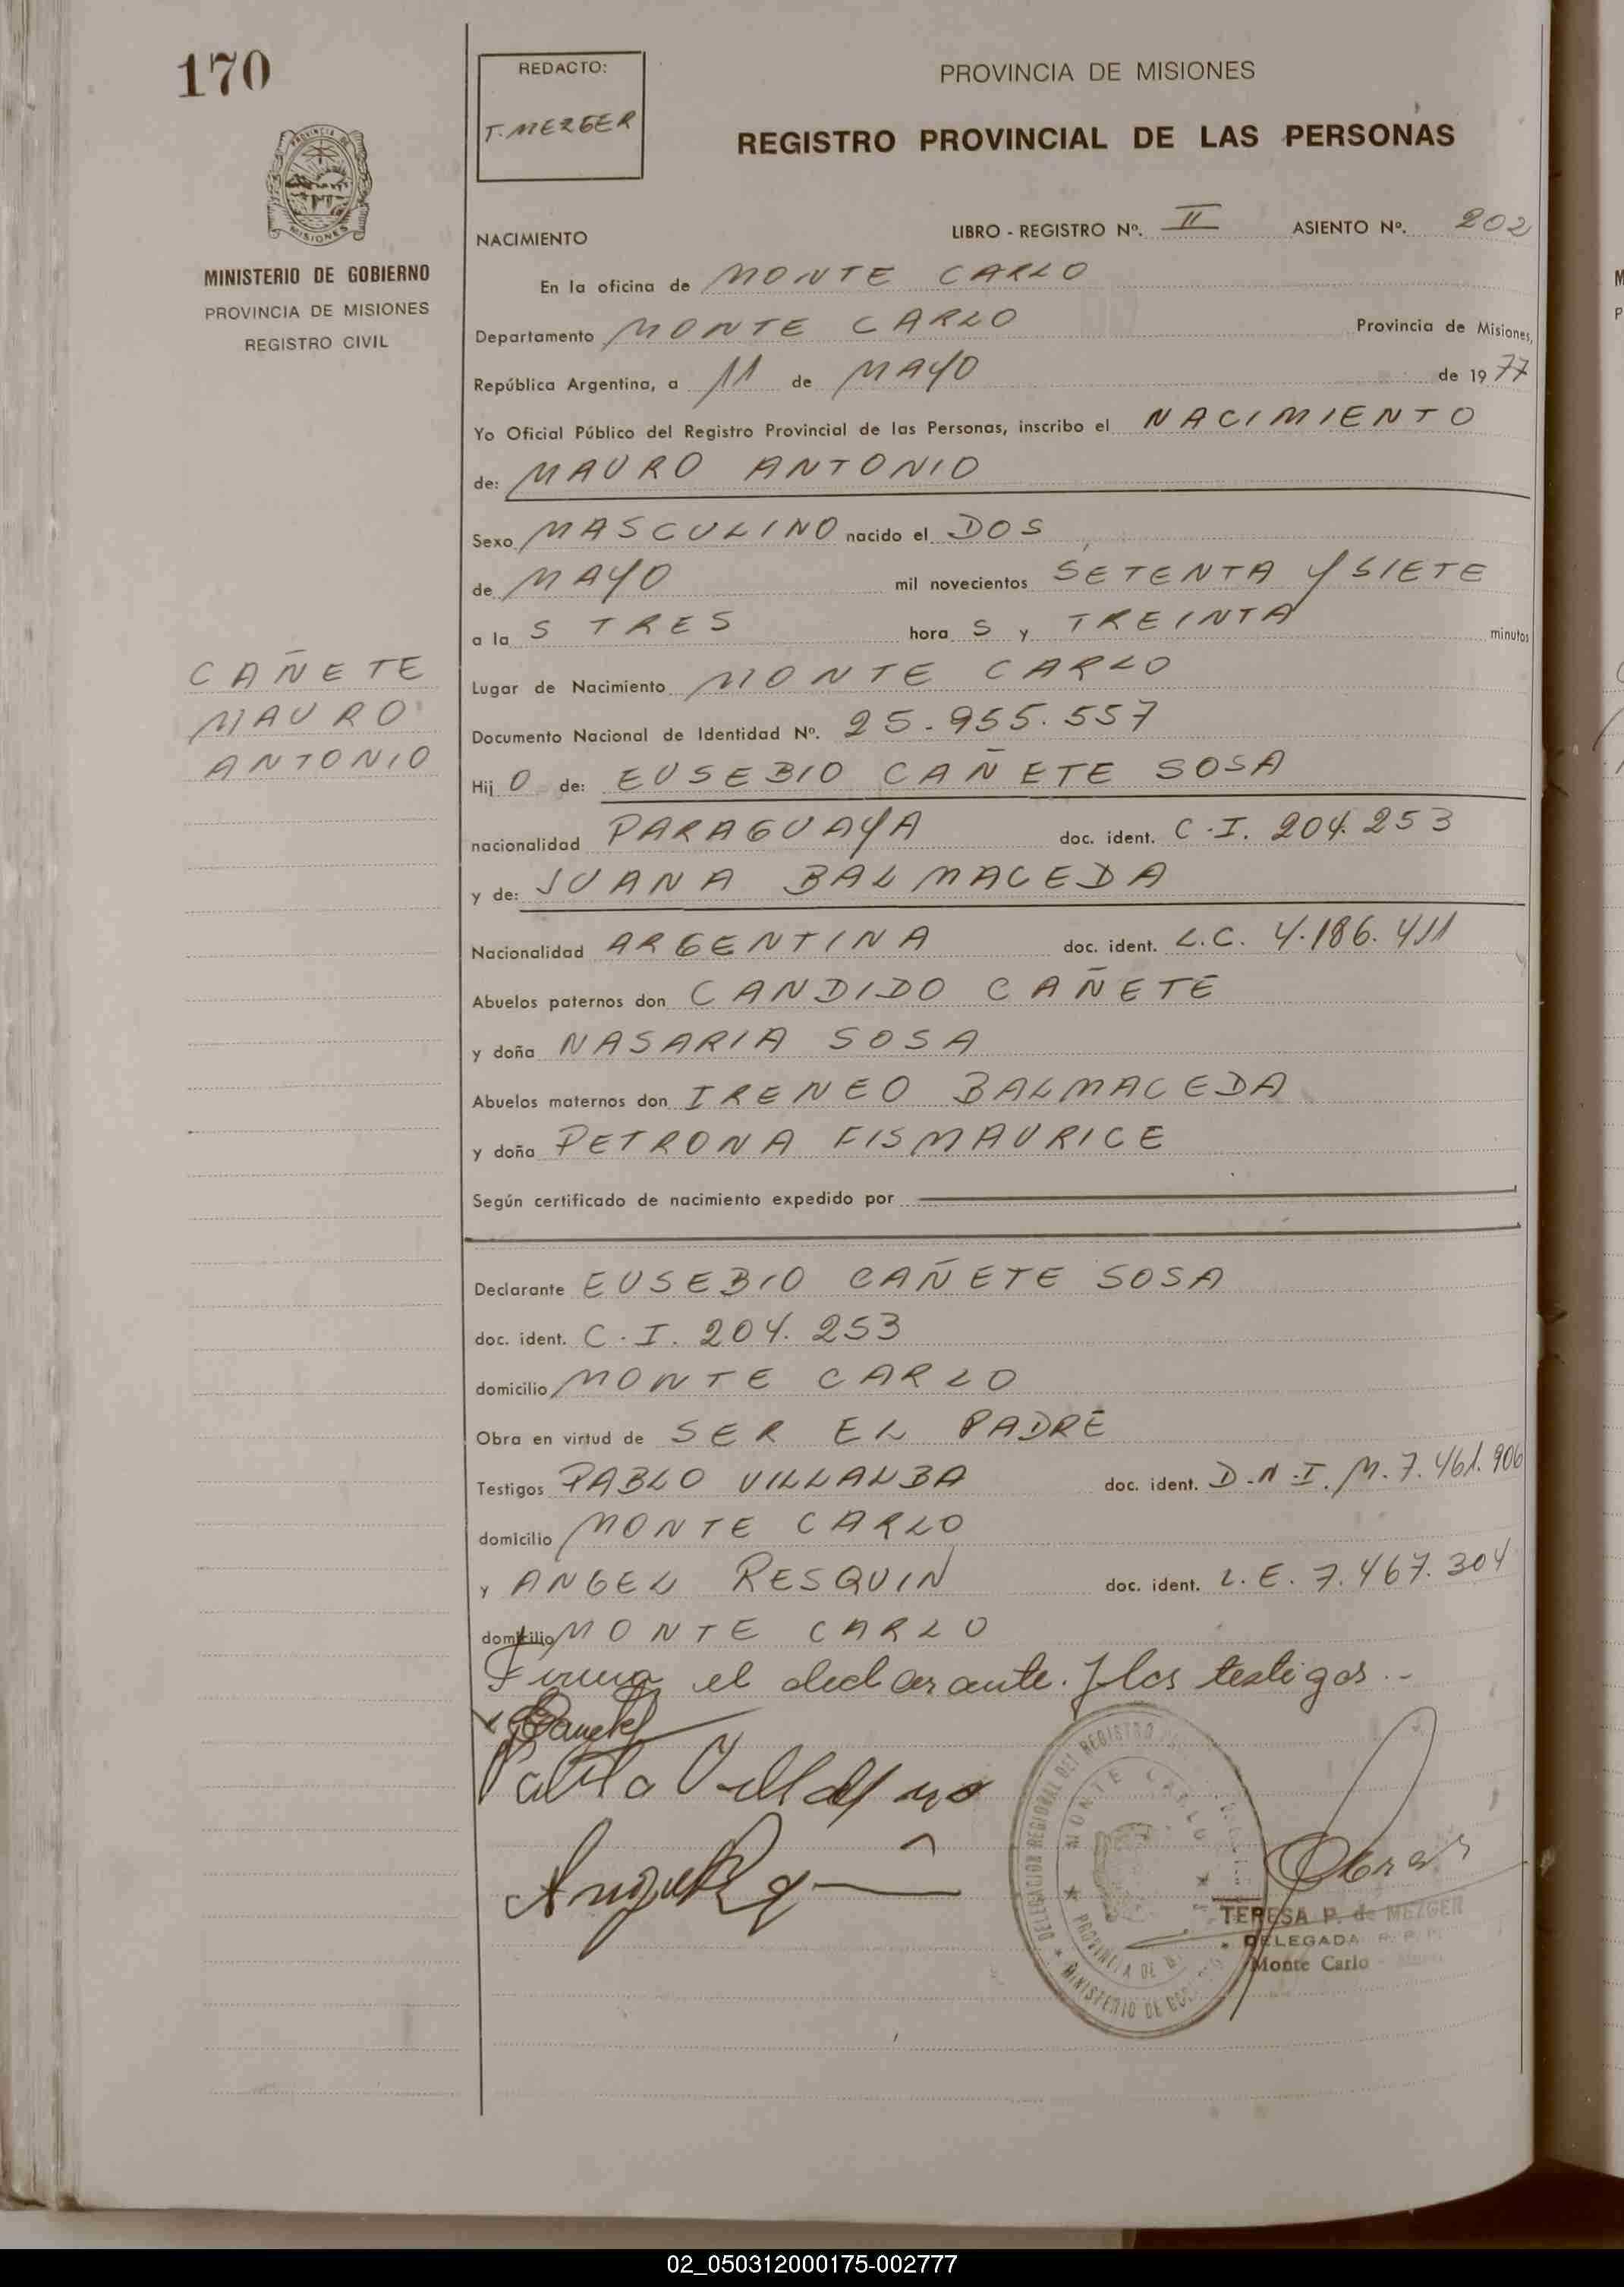 170
REDACTO:
T. MEZGER
PROVINCIA DE MISIONES
REGISTRO PROVINCIAL DE LAS PERSONAS
PROVINCIA DE
MISIONES
MINISTERIO DE GOBIERNO
PROVINCIA DE MISIONES
REGISTRO CIVIL
NACIMIENTO
LIBRO - REGISTRO Nº. II ASIENTO Nº. 202
En la oficina de MONTE CARLO
Departamento MONTE CARLO Provincia de Misiones,
República Argentina, a 11 de MAYO de 1977
Yo Oficial Público del Registro Provincial de las Personas, inscribo el NACIMIENTO
de: MAURO ANTONIO
Sexo MASCULINO nacido el DOS
de MAYO mil novecientos SETENTA Y SIETE
a la S TRES hora S y TREINTA minutos
CAÑETE
MAURO
ANTONIO
Lugar de Nacimiento MONTE CARLO
Documento Nacional de Identidad Nº. 25.955.557
Hij O de: EUSEBIO CAÑETE SOSA
nacionalidad PARAGUAYA doc. ident. C.I. 204.253
y de: JUANA BALMACEDA
Nacionalidad ARGENTINA doc. ident. L.C. 4.186.411
Abuelos paternos don CANDIDO CAÑETE
y doña NASARIA SOSA
Abuelos maternos don IRENEO BALMACEDA
y doña PETRONA FISMAURICE
Según certificado de nacimiento expedido por
Declarante EUSEBIO CAÑETE SOSA
doc. ident. C.I. 204.253
domicilio MONTE CARLO
Obra en virtud de SER EL PADRE
Testigos PABLO VILLALBA doc. ident. D.N.I. M. 7.461.906
domicilio MONTE CARLO
y ANGEL RESQUIN doc. ident. L.E. 7.467.304
domicilio MONTE CARLO
Firma el declarante. y los testigos.-
DELEGACION REGIONAL DEL REGISTRO
MONTE CARLO
PROVINCIA DE
MINISTERIO DE
TERESA P. de MEZGER
DELEGADA R. P. P.
Monte Carlo
02_050312000175-002777